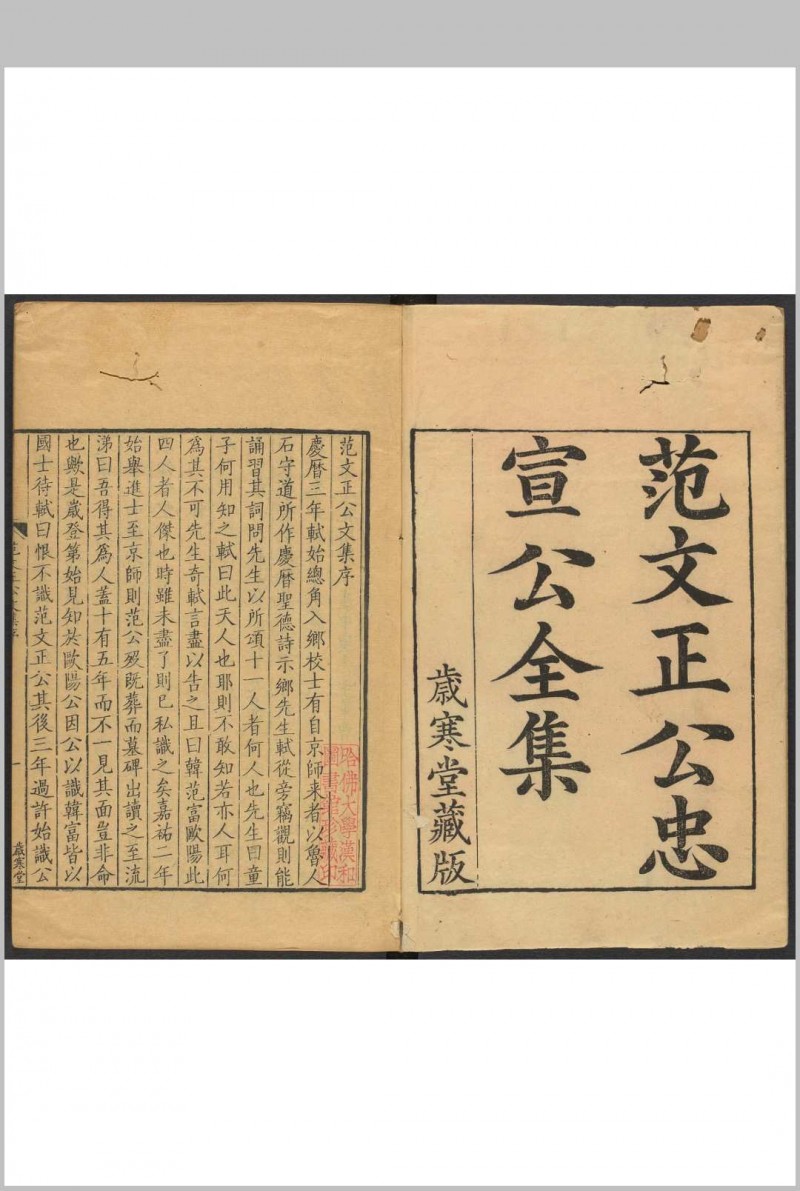 范文正公忠
宣公全集
歳寒堂藏版
范文正公文集序
慶曆三年軾始總角入鄉校士有自京師来者以魯人
石守道所作慶曆聖德詩示鄉先生軾從旁竊觀則能
誦習其詞問先生以所頌十一人者何人也先生曰童
子何用知之軾曰此天人也耶則不敢知若亦人耳何
爲其不可先生奇軾言盡以告之且曰韓范富歐陽此
四人者人傑也時雖未盡了則已私識之矣嘉祐二年
始舉進士至京師則范公歿既葬而墓碑出讀之至流
涕曰吾得其爲人蓋十有五年而不一見其面豈非命
也歟是歲登第始見知於歐陽公因公以識韓富皆以
國士待軾曰恨不識范文正公其後三年過許始識公
歲寒堂
哈佛大學漢和
圖書館珍藏印